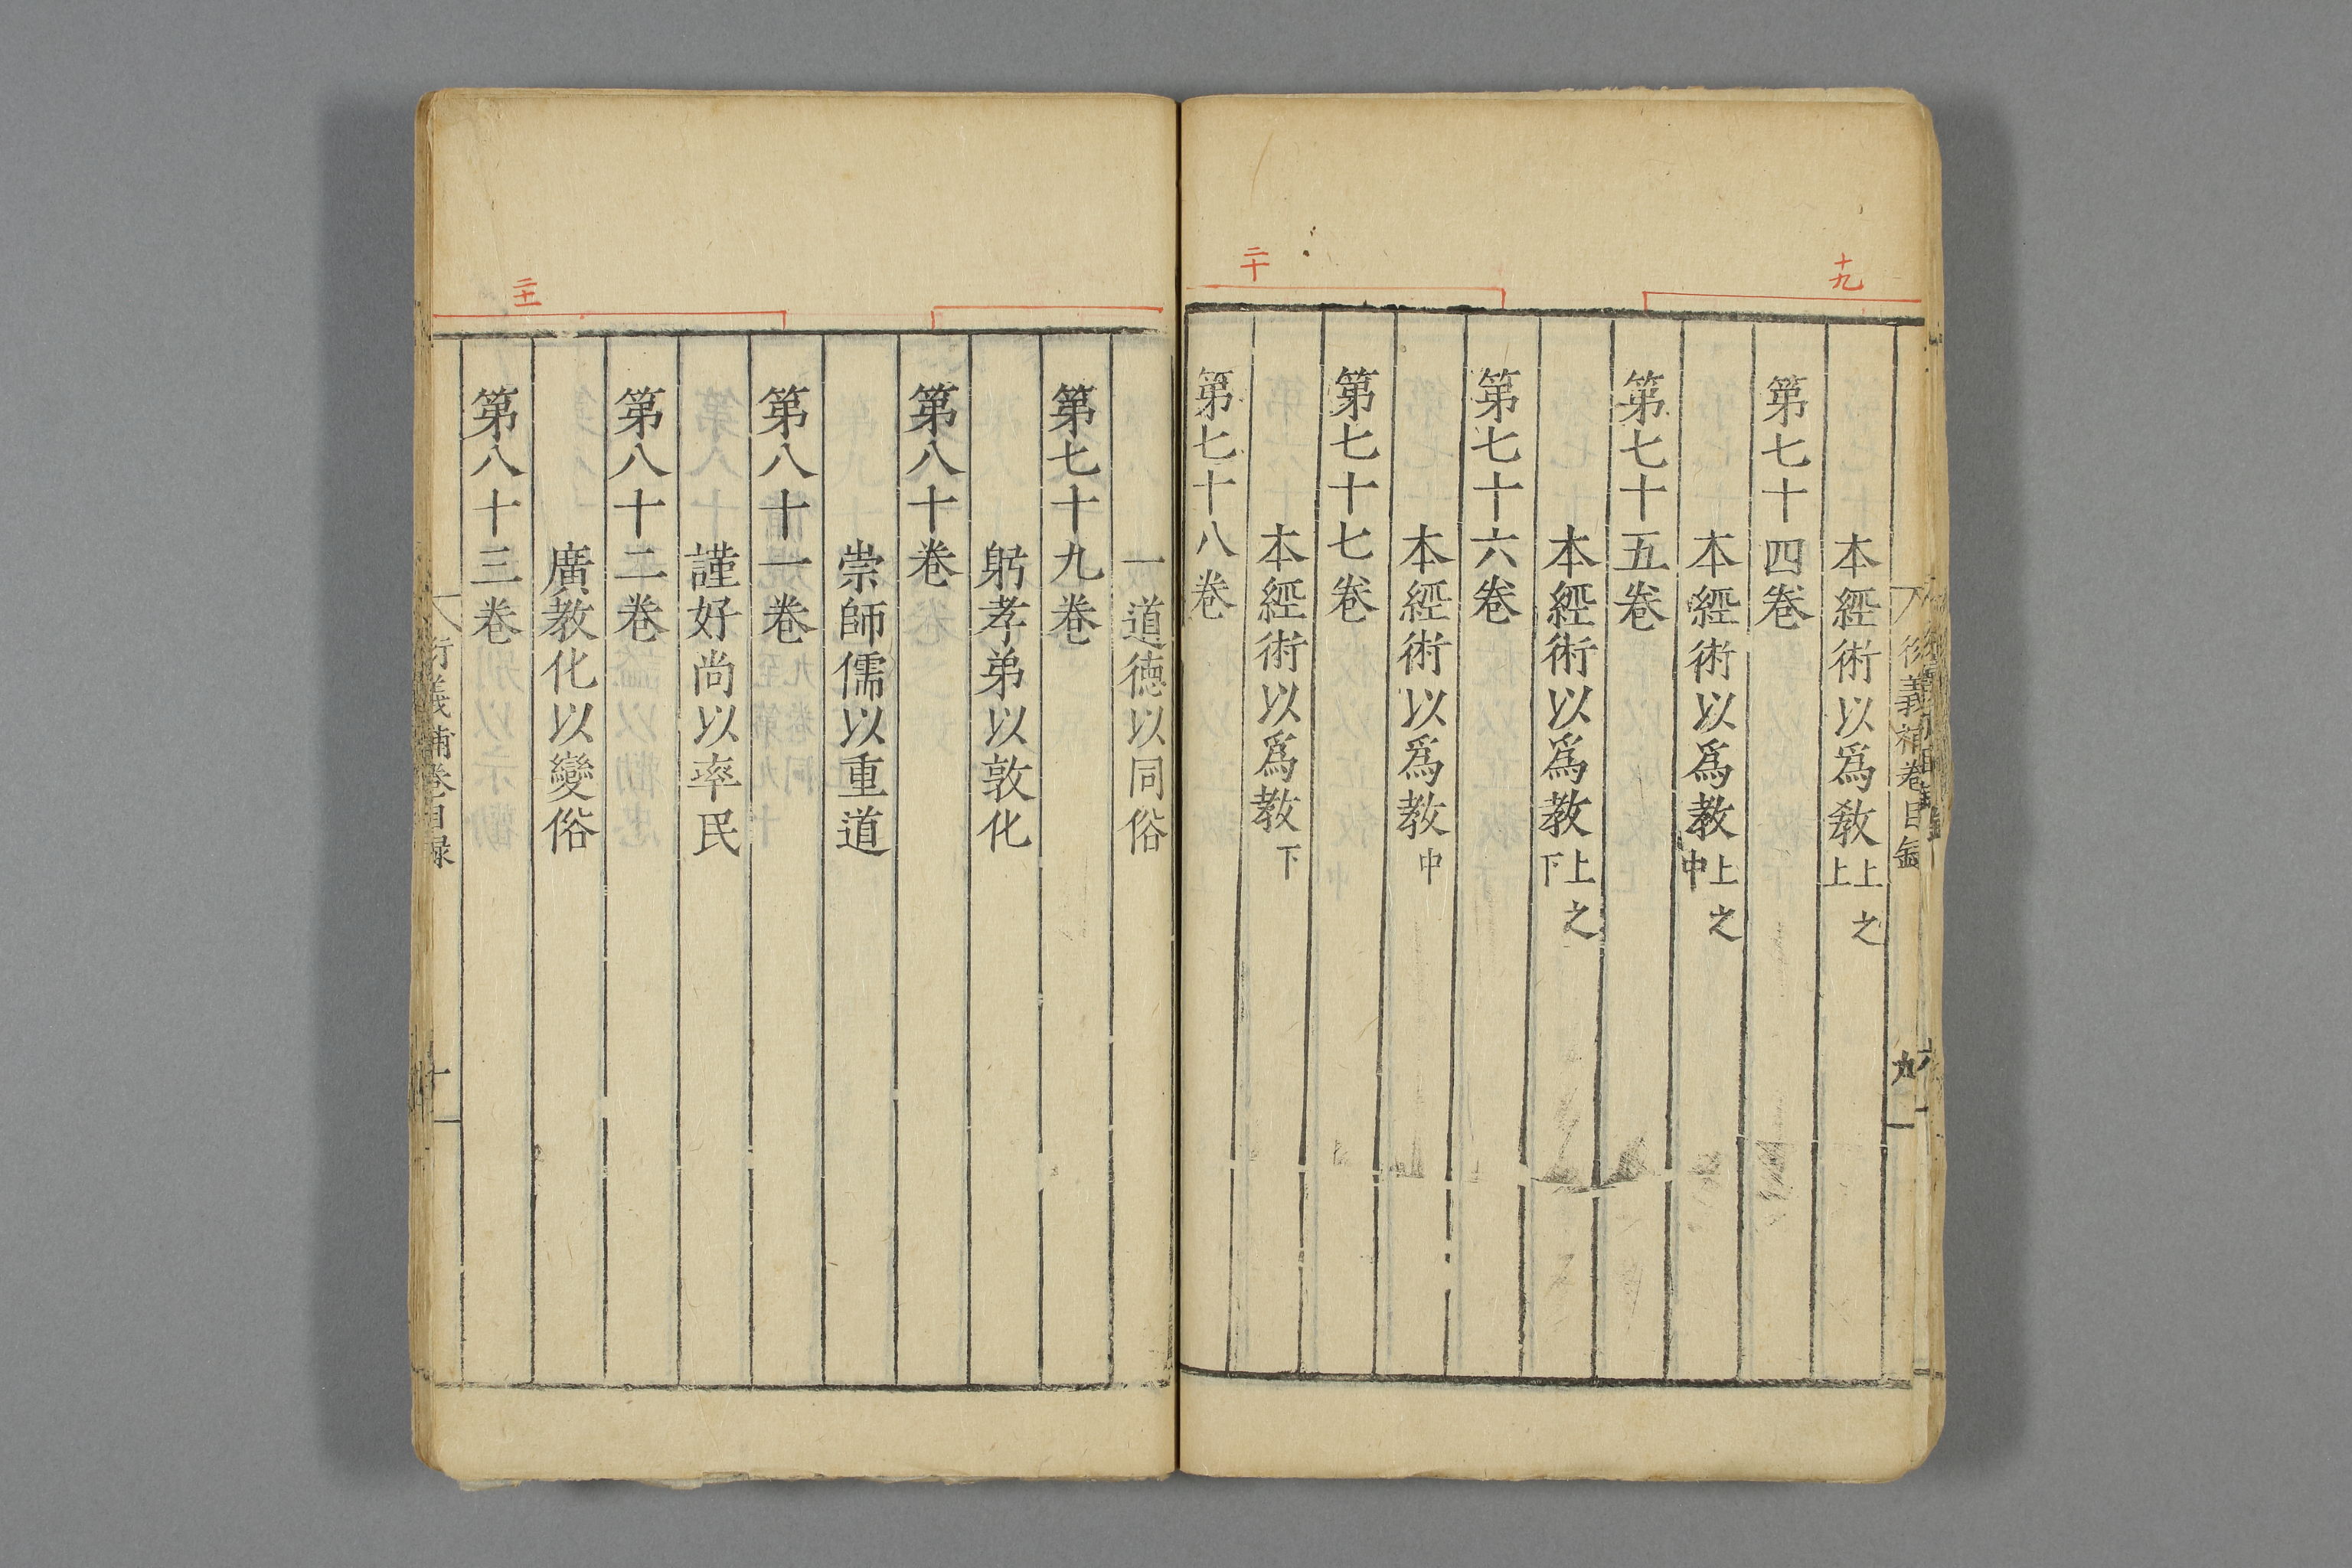 十九
本經術以爲教上之上
第七十四卷
本經術以爲教上之中
第七十五卷
本經術以爲教上之下
第七十六卷
本經術以爲教中
第七十七卷
本經術以爲教下
二十
第七十八卷
一道德以同俗
第七十九卷
躬孝弟以敦化
第八十卷
崇師儒以重道
第八十一卷
謹好尚以率民
第八十二卷
廣教化以變俗
二十一
第八十三卷